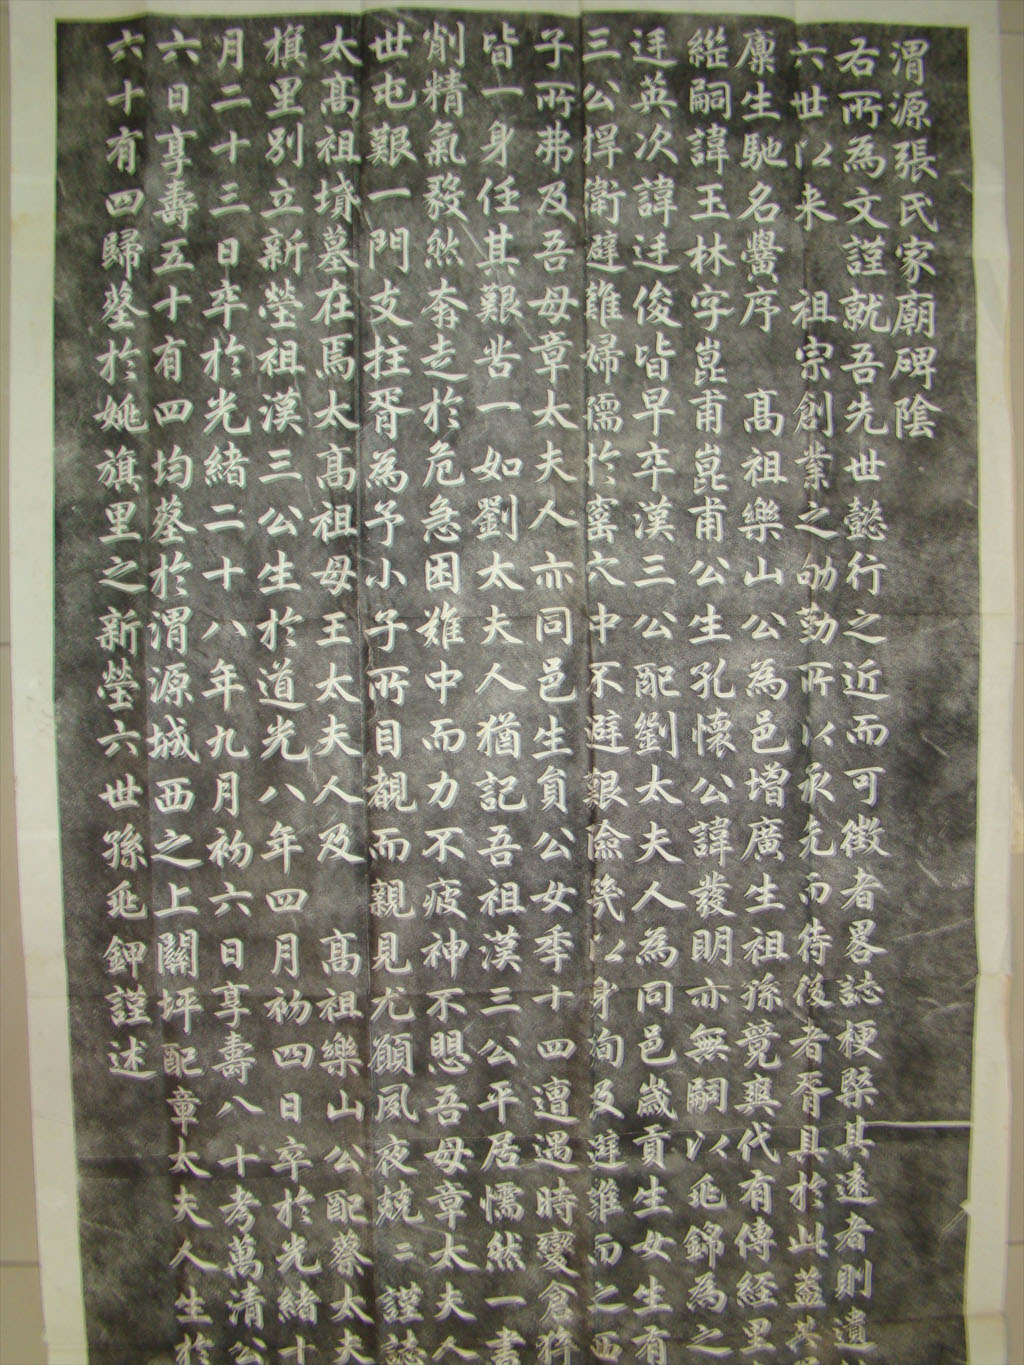 渭源張氏家廟碑陰
右所為文謹就吾先世懿行之近而可徵者畧誌梗槩其遠者則遺
六世以来 祖宗創業之劬勤所以承先而待後者胥具於此蓋其
廪生馳名黌序 髙祖樂山公為邑增廣生祖孫競爽代有傳經里
繼嗣諱玉林字崑甫崑甫公生孔懷公諱發明亦無嗣以兆錦為之
廷英次諱廷俊皆早卒漢三公配劉太夫人為同邑歲貢生女生有
三公捍衛避難婦孺於窰穴中不避艱險幾以身殉及避難而之西
子所弗及吾母章太夫人亦同邑生貟公女季十四遭遇時變倉猝
皆一身任其艱苦一如劉太夫人猶記吾祖漢三公平居懦然一書
削精氣發然奔走於危急困難中而力不疲神不愳吾母章太夫人
世屯艱一門支拄胥為予小子所目覩而親見尤願夙夜兢二謹誌
太髙祖墳墓在焉太髙祖母王太夫人及 髙祖樂山公配蔡太夫
旗里別立新塋祖漢三公生於道光八年四月初四日卒於光緒十
月二十三日卒於光緒二十八年九月初六日享壽八十考萬清公
六日享壽五十有四均塟於渭源城西之上關坪配章太夫人生於
六十有四歸塟於姚旗里之新塋六世孫兆鉀謹述